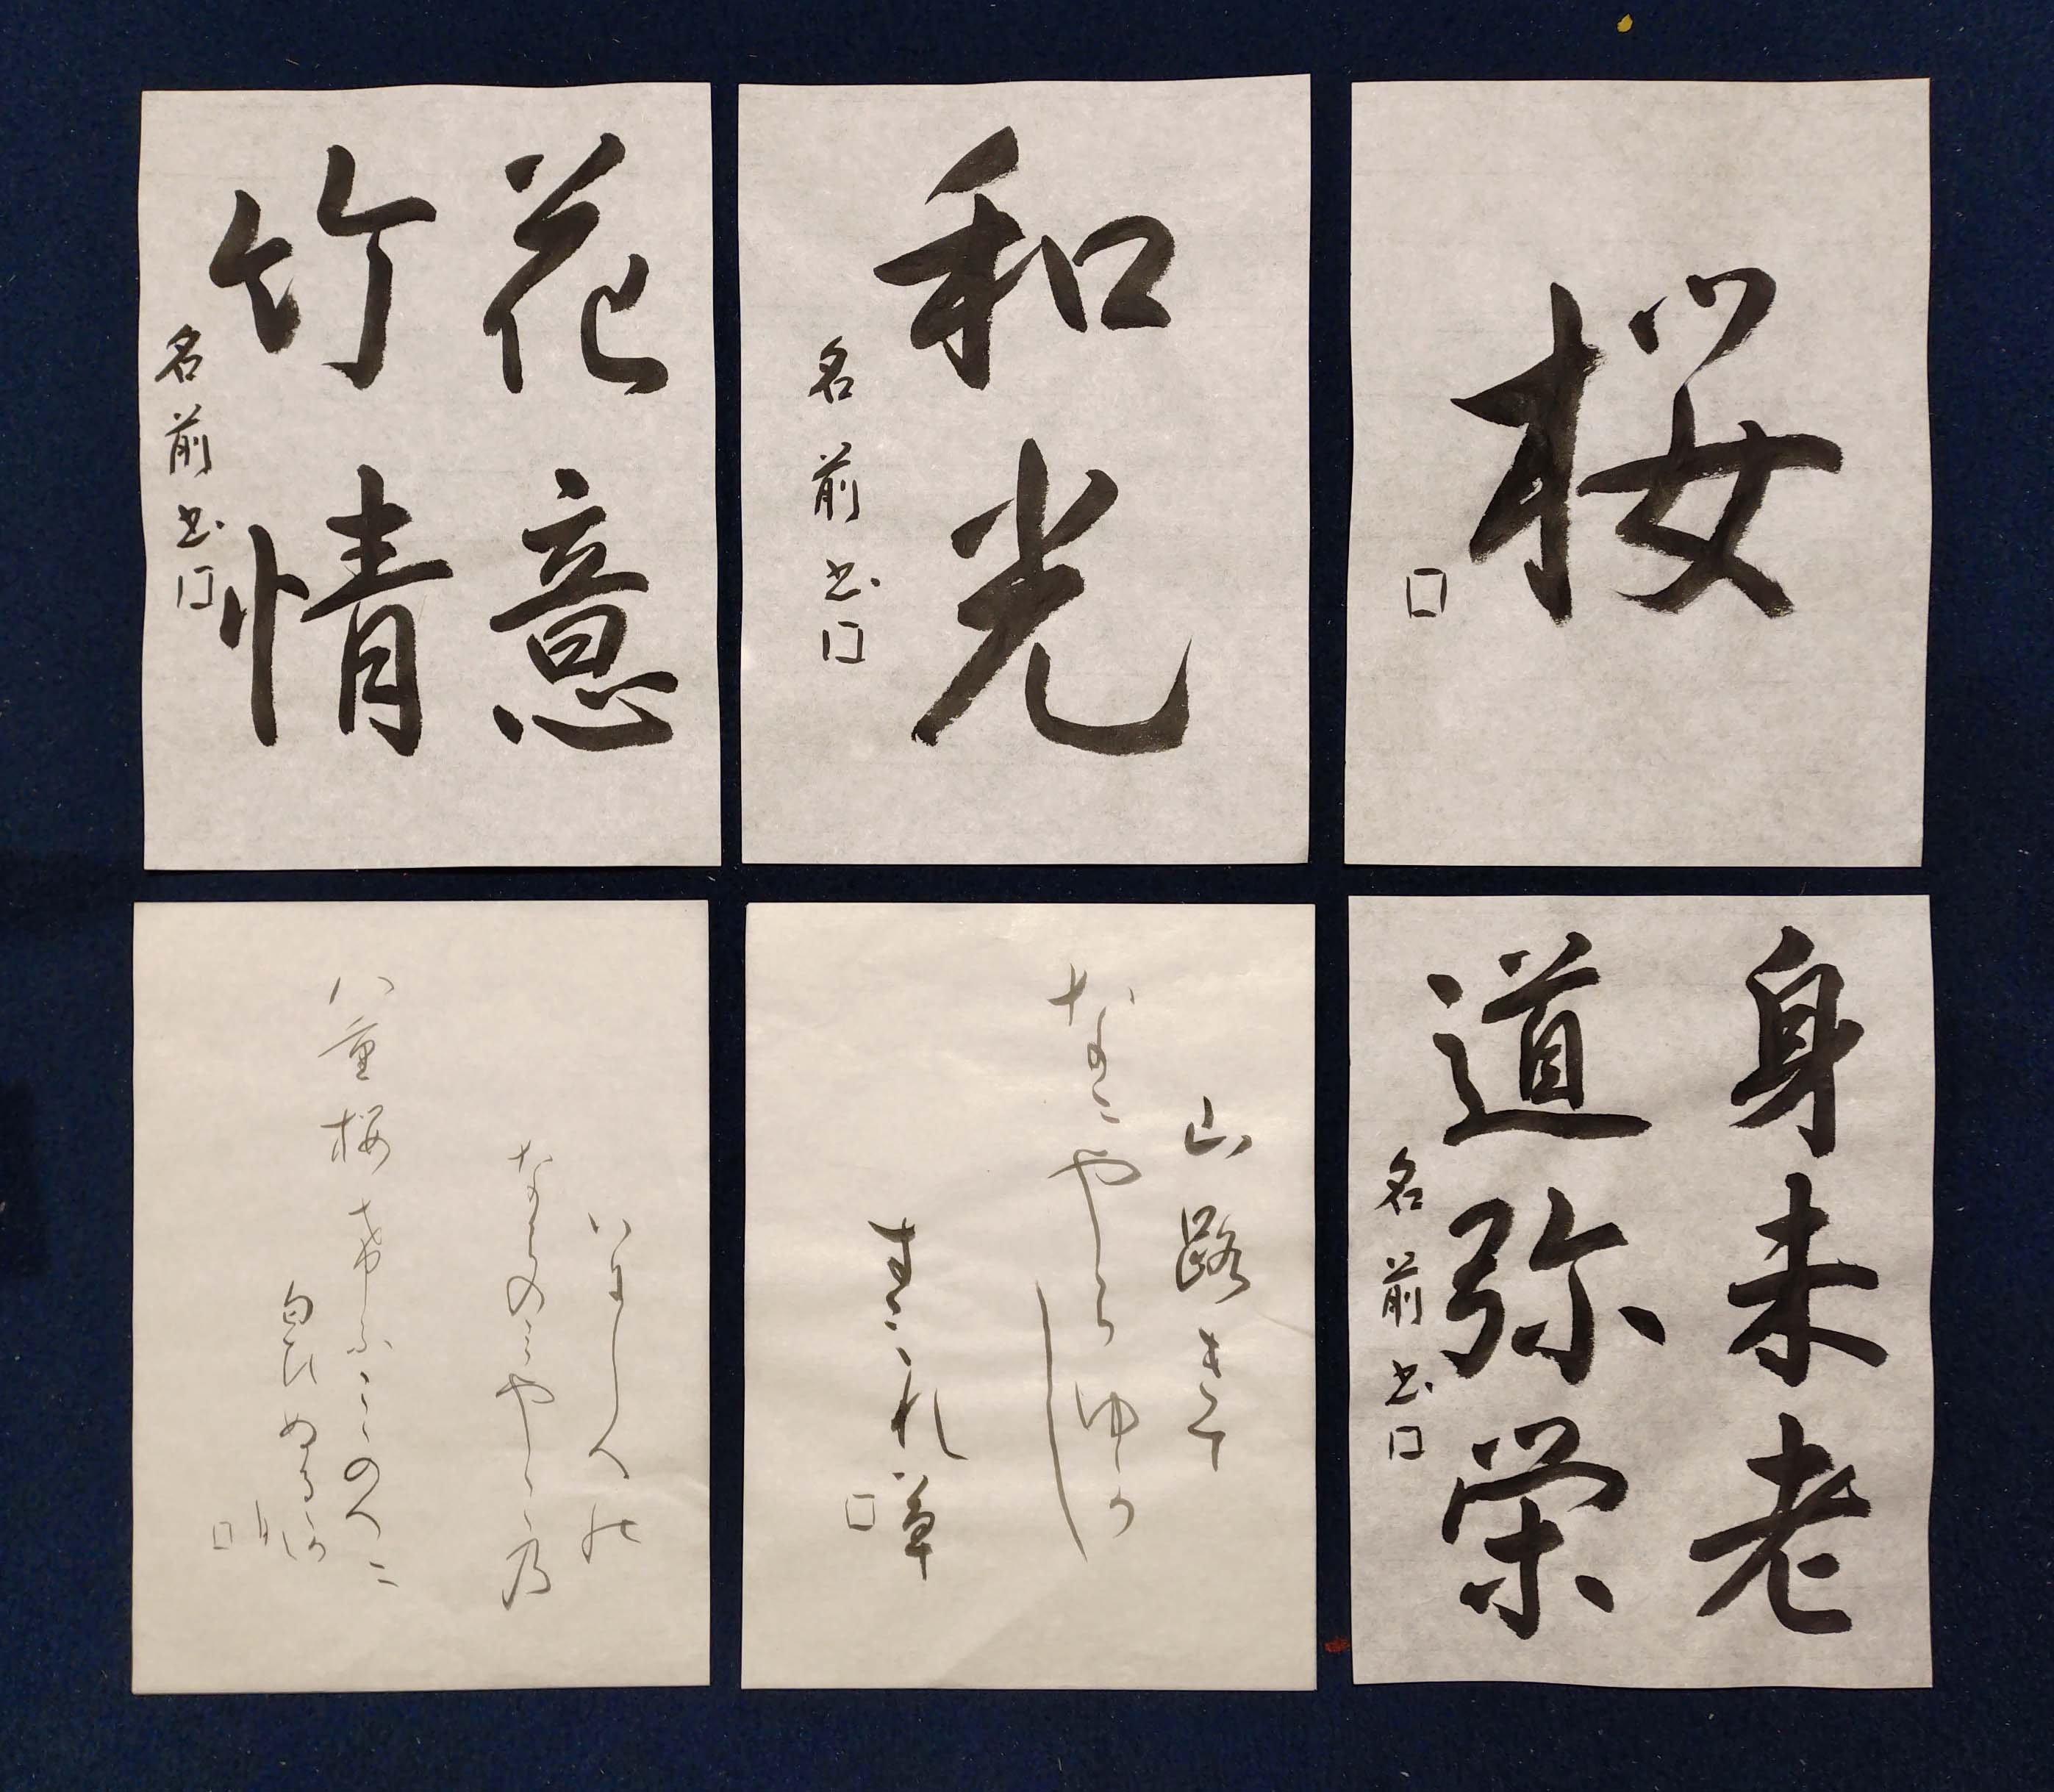 桜
和光
名前書
花意
竹情
名前書
身未老
道弥栄
名前書
山路きて
なにやらゆかし
すみれ草
いにしへの
ならのみやこの
八重桜けふここのへに
匂ひぬるかな